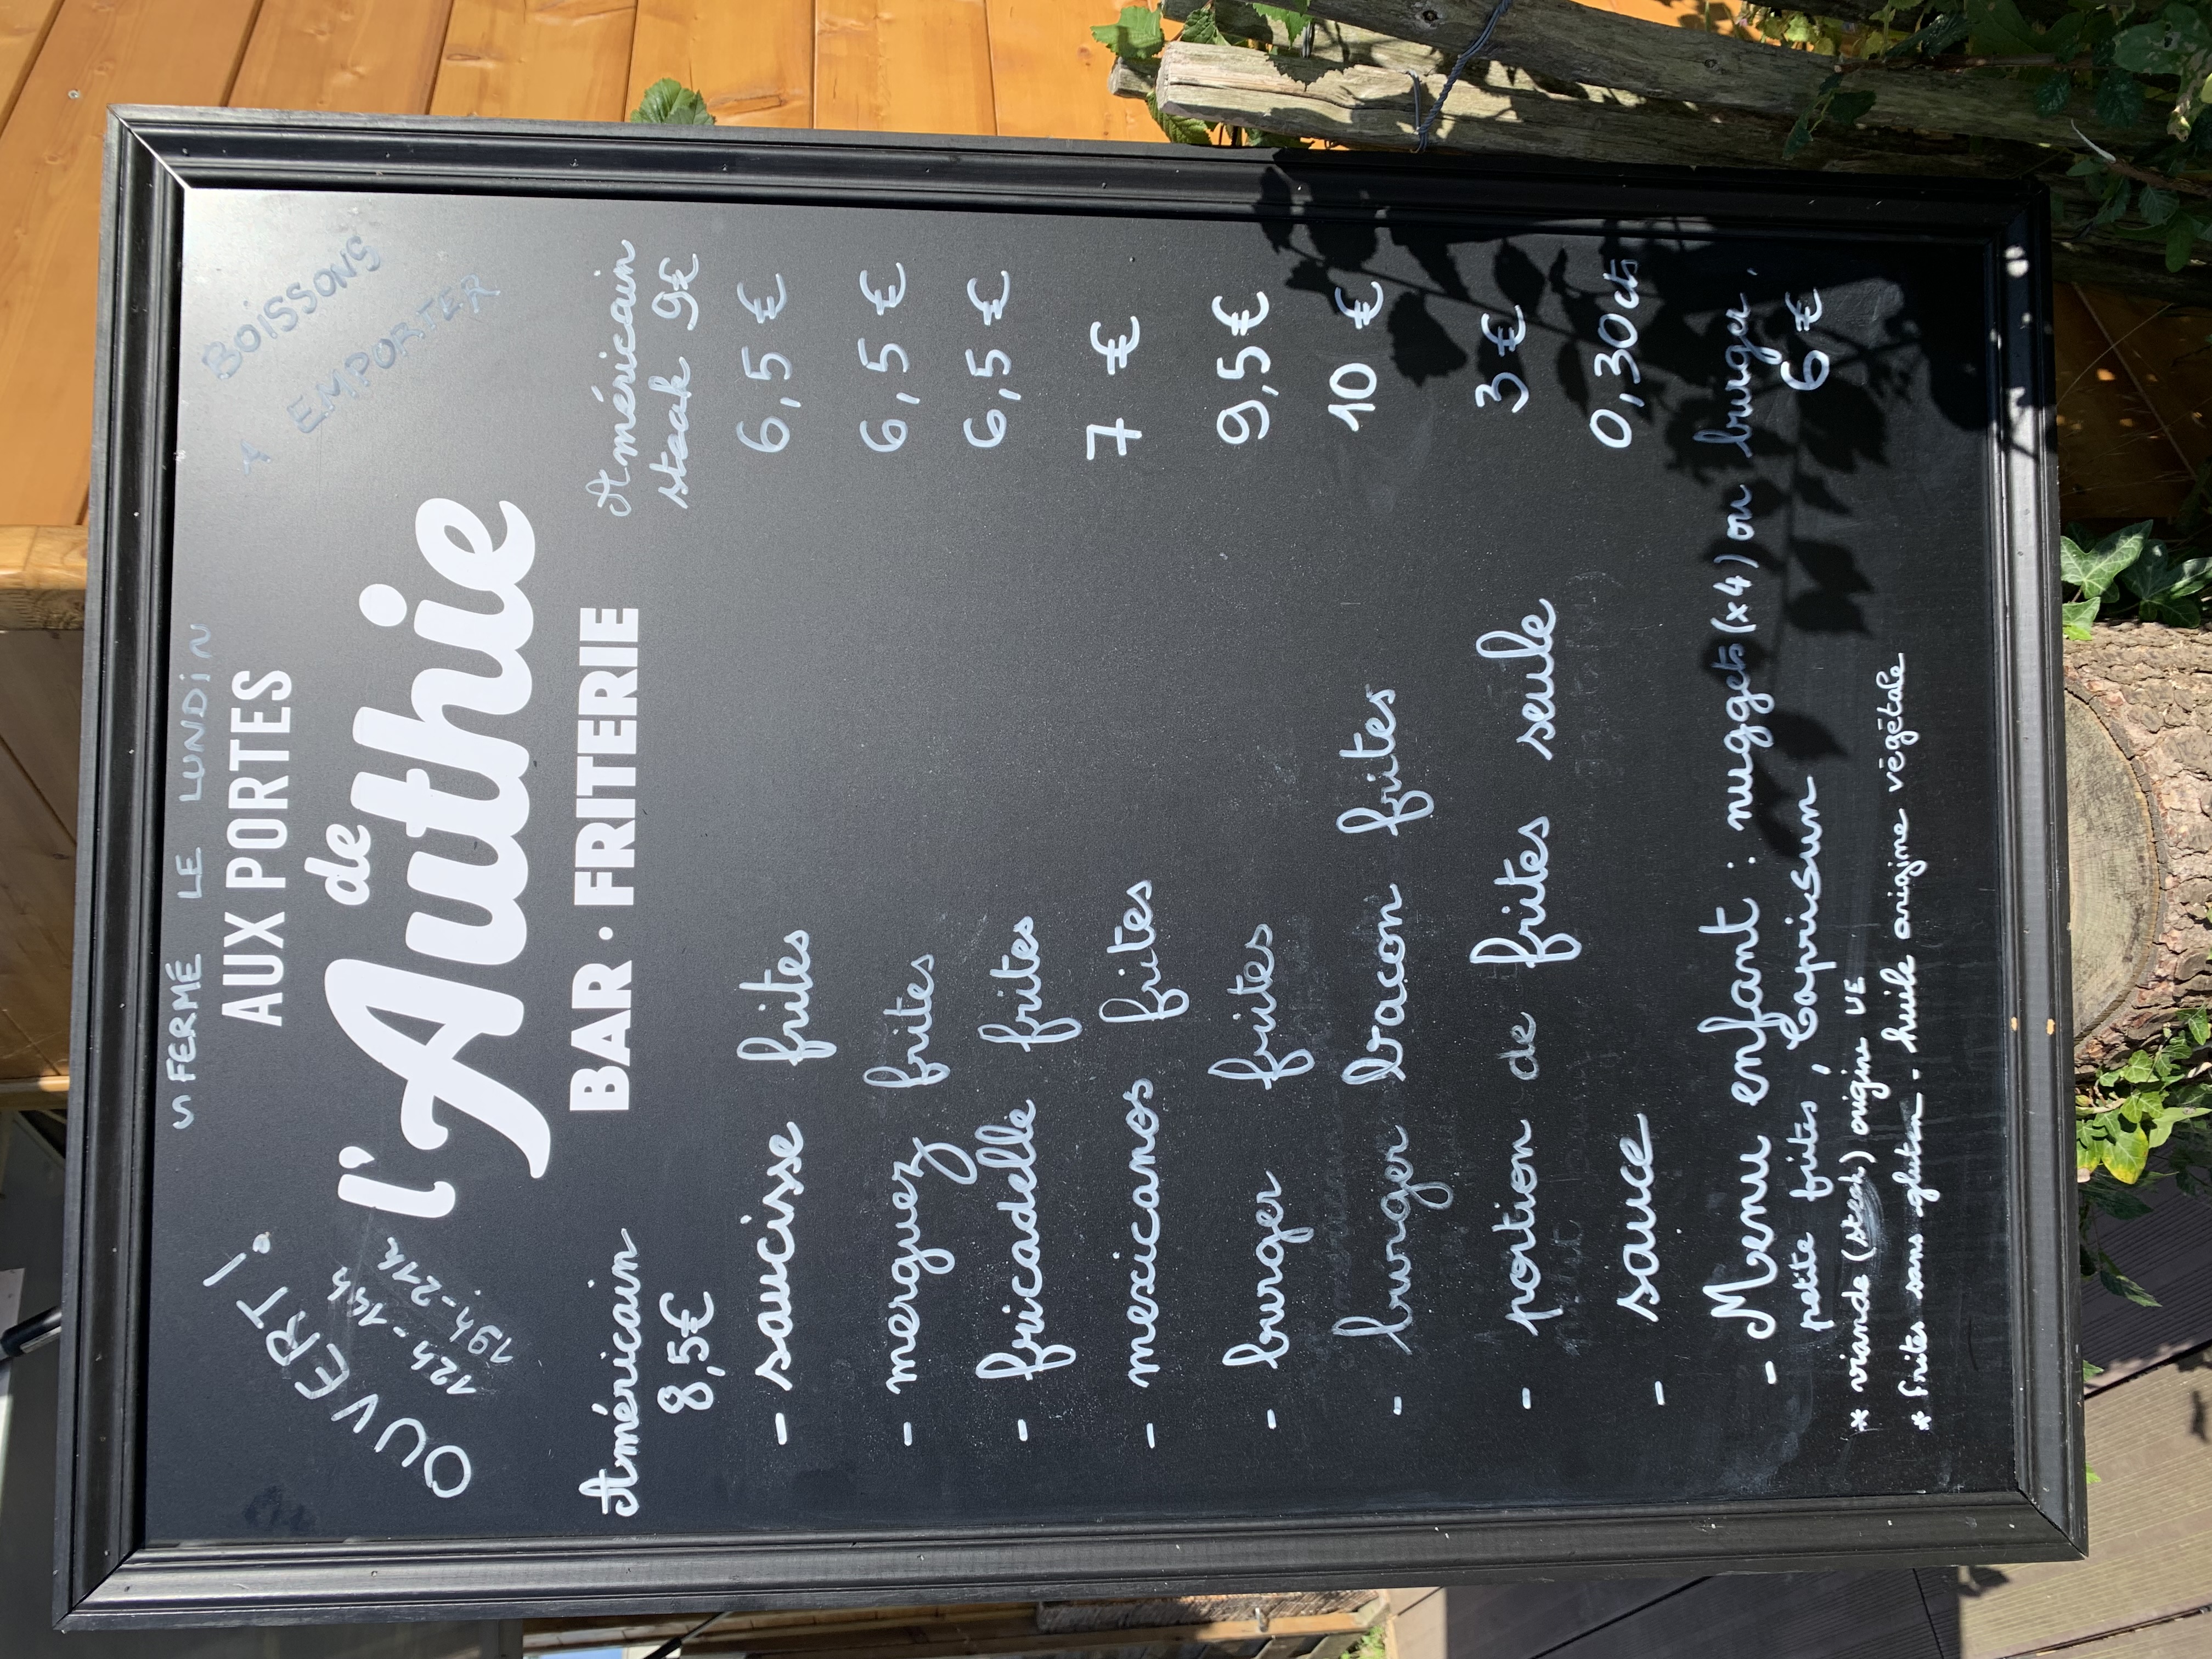 FERMÉ LE LUNDI
AUX PORTES
de
l'Authie
BAR · FRITERIE
OUVERT !
12h-14h
19h-21h
BOISSONS
À EMPORTER
Américain
8,5€
Américain
steak 9€
- saucisse frites 6,5 €
- merguez frites 6,5 €
- fricadelle frites 6,5 €
- mexicanos frites 7 €
- burger frites 9,5€
- burger bacon frites 10 €
- portion de frites seule 3 €
- sauce 0,30 cts
- Menu enfant : nuggets (x4) ou burger,
petite frites, Caprisun 6€
* viande (steak) origine UE
* frites sans gluten - huile origine végétale